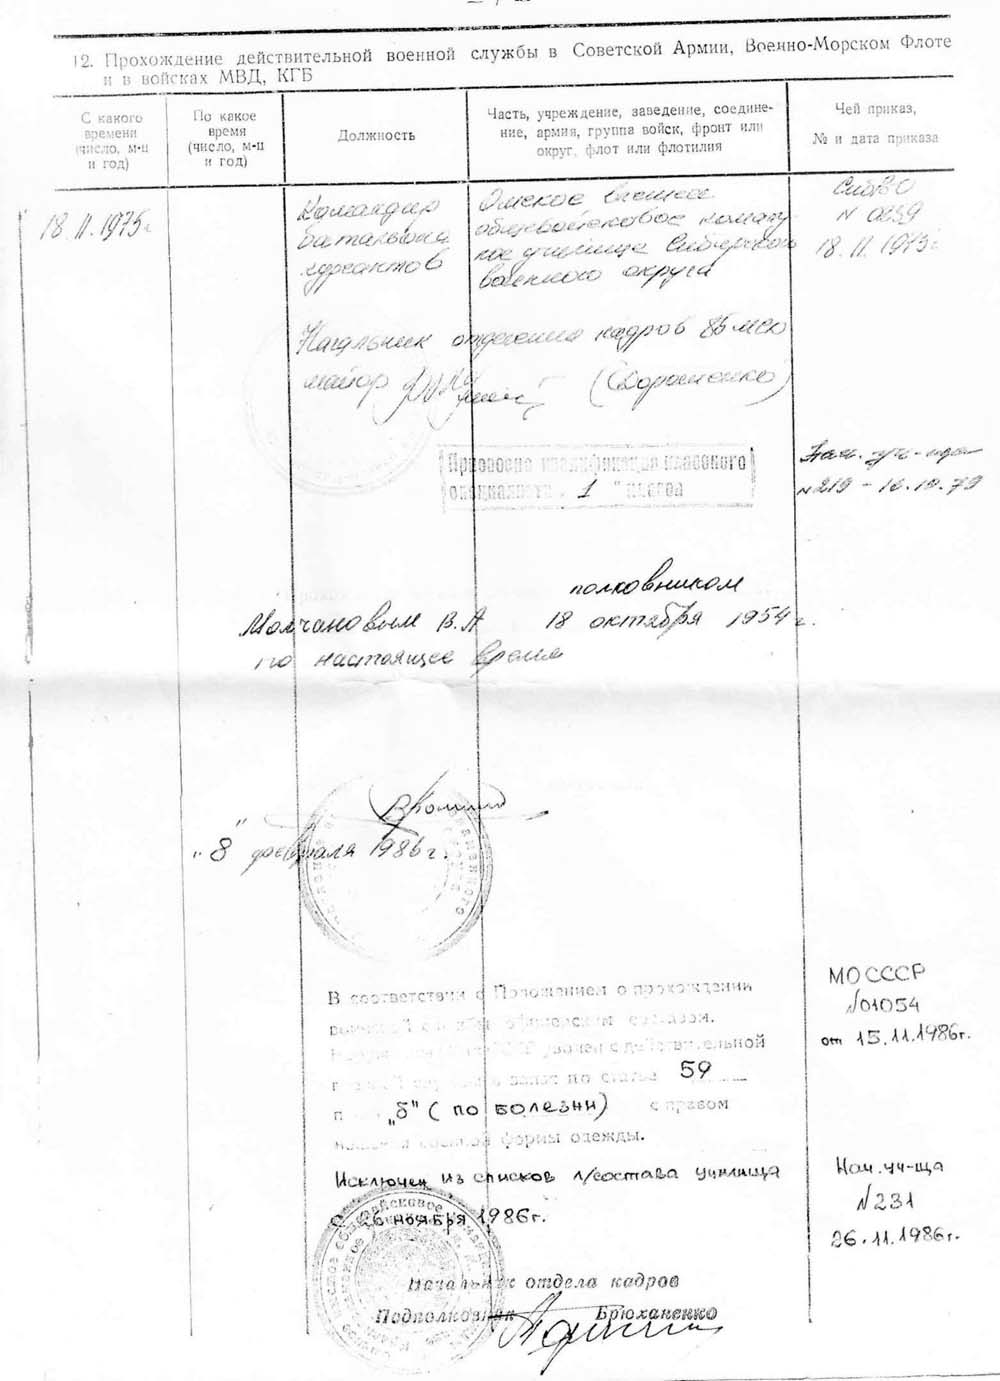 12. Прохождение действительной военной службы в Советской Армии, Военно-Морском Флоте
и в войсках МВД, КГБ
С какого
времени
(число, м-ц
и год)
По какое
время
(число, м-ц
и год)
Должность
Часть, учреждение, заведение, соедине-
ние, армия, группа войск, фронт или
округ, флот или флотилия
Чей приказ,
№ и дата приказа
18.11.1975г
Командир
батальона
курсантов
Омское высшее
общевойсковое команд
ное училище Сибирского
военного округа
СибВО
N 0839
18.11.1975г
Начальник отделения кадров 85 мсп
майор (Дорошенко)
Присвоена квалификация классного
специалиста „1" класса
Нач. уч-ща
N219 - 16.10.79
полковником
Молчановым В.А 18 октября 1954г.
по настоящее время
„8" февраля 1986г.
В соответствии с Положением о прохождении
военной службы офицерским составом
уволен с действительной
запас по статье 59
п „б" (по болезни) с правом
ношения военной формы одежды.
МО СССР
№01054
от 15.11.1986г.
Исключен из списков л/состава училища
с 26 ноября 1986г.
Нач. уч-ща
№231
26.11.1986г.
Начальник отдела кадров
Подполковник Брюханенко